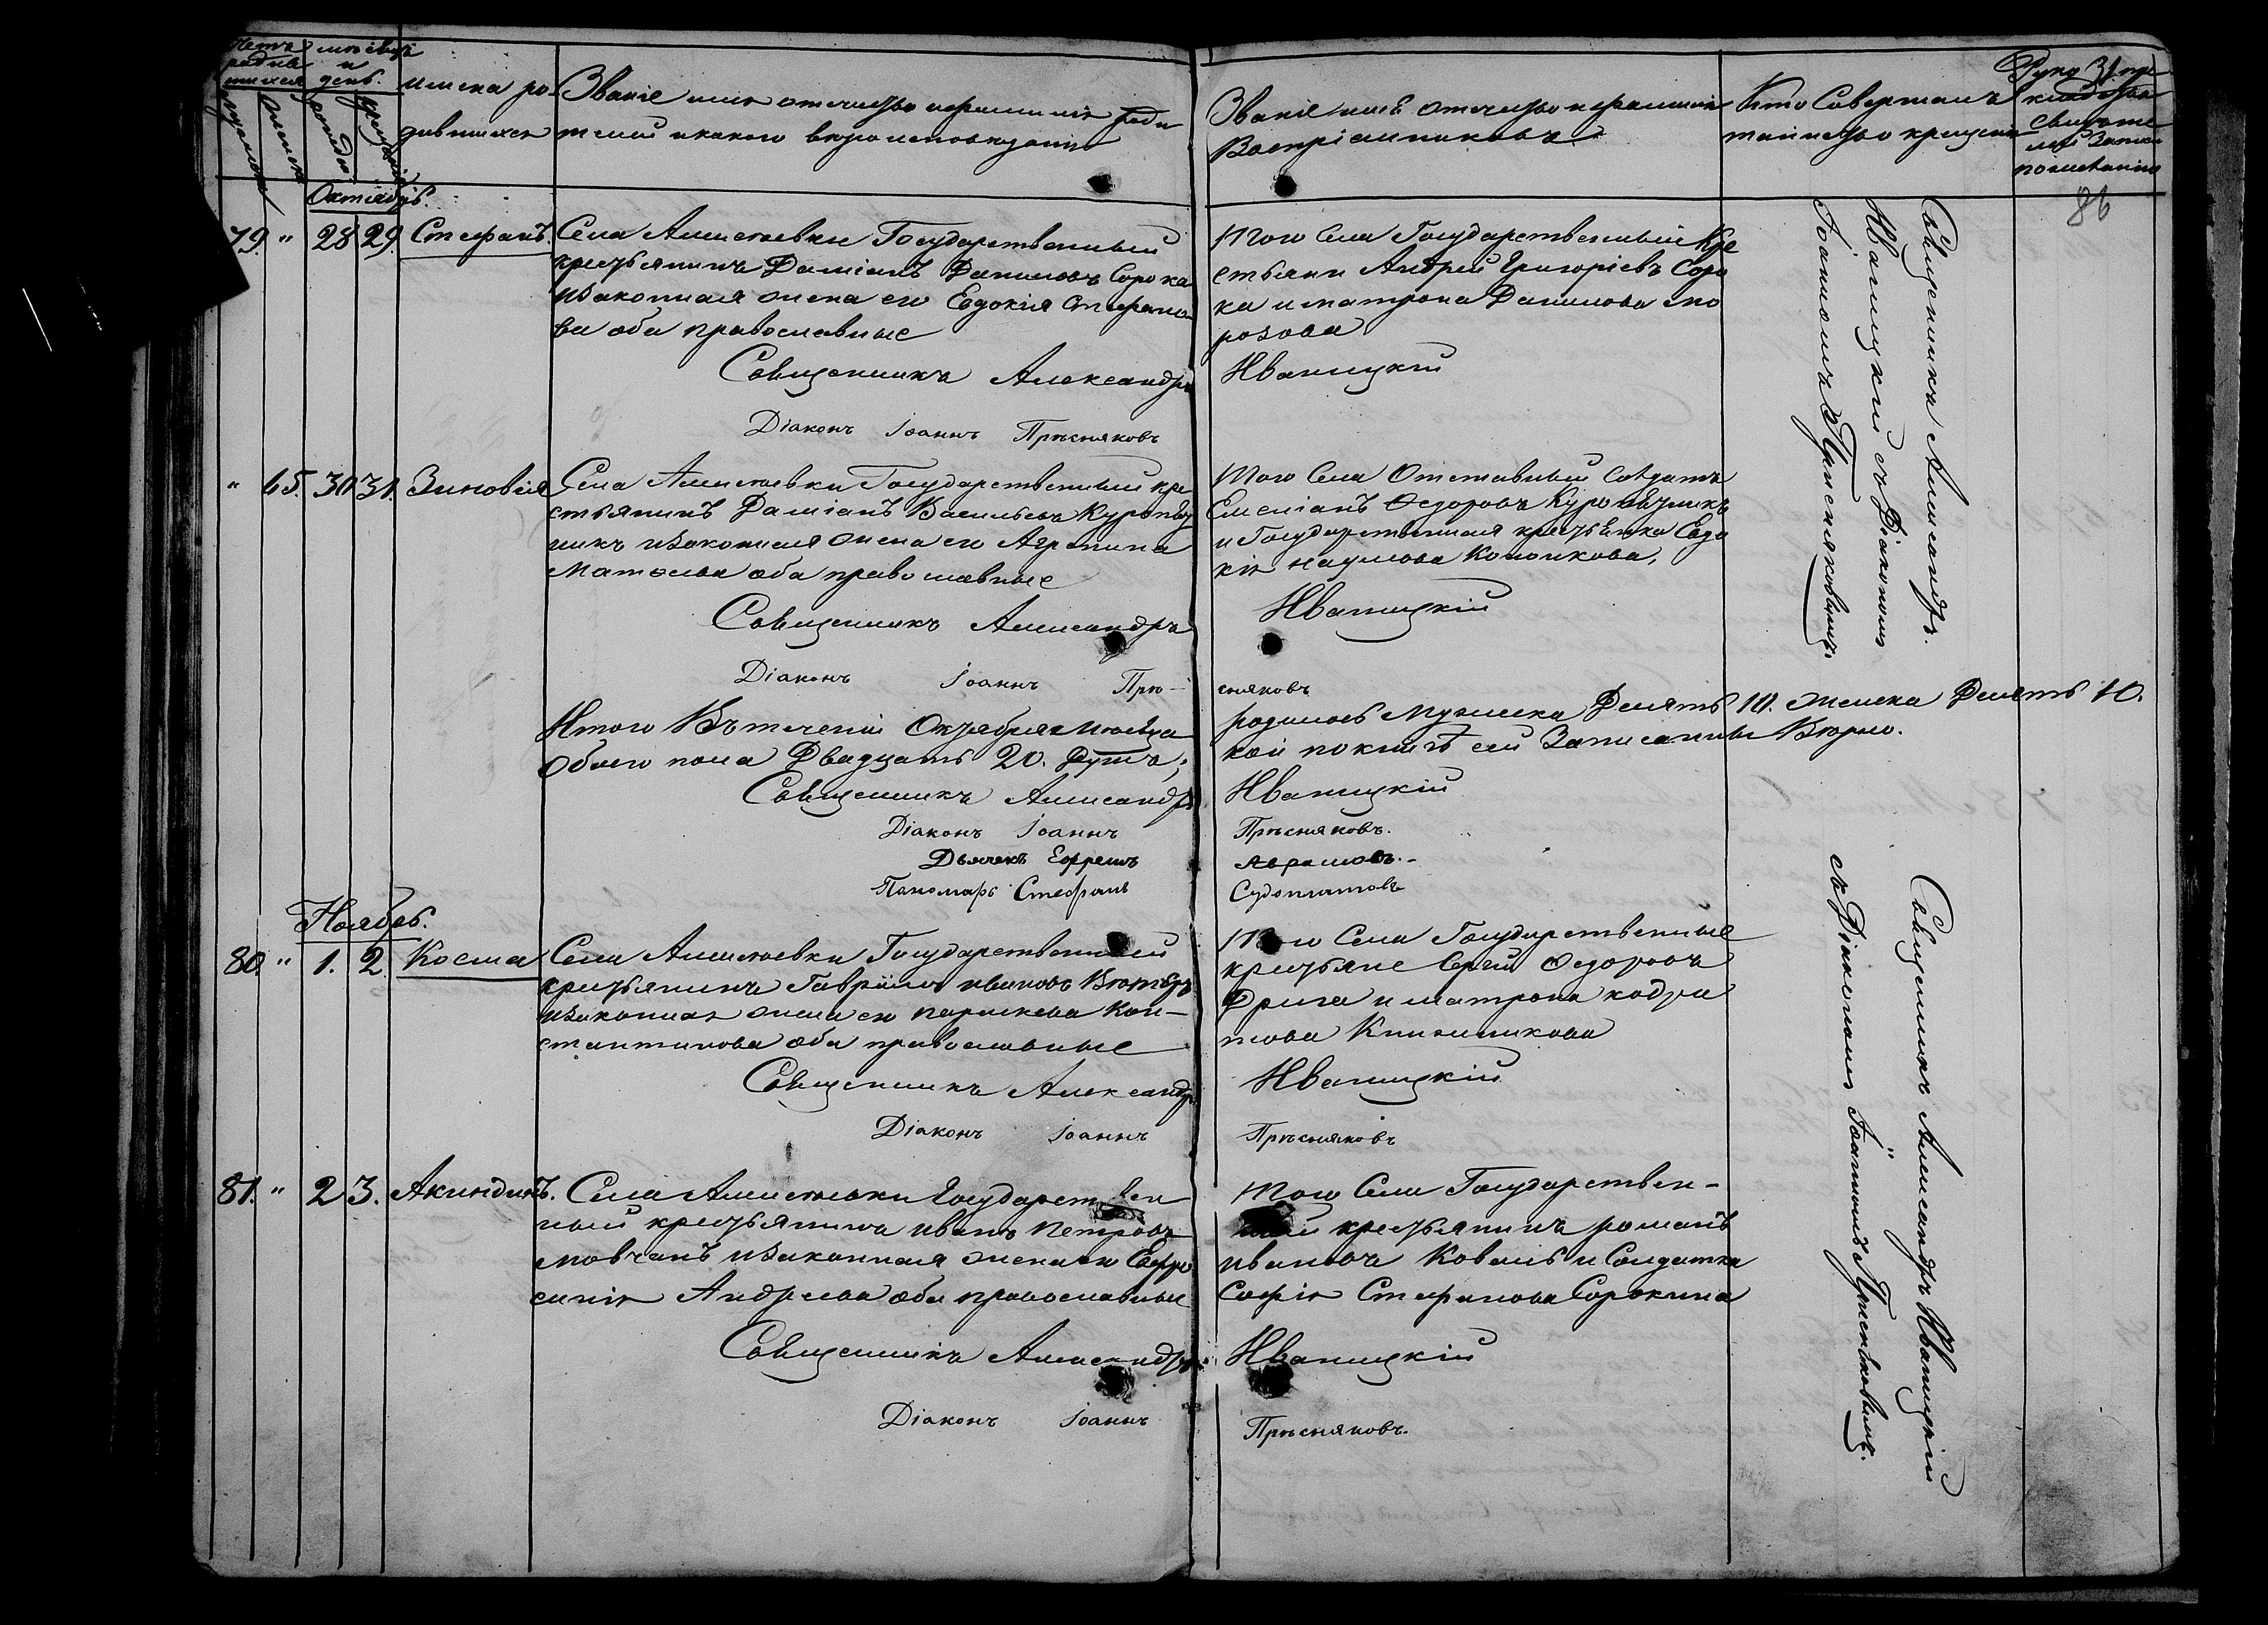 Счетъ родив шихся
мѣсяцъ и день.
мужеска
женска
рожде.
крещенія
имена ро-
дившихся
Званіе имя отчество и фамилія роди
телей и какого вѣроисповѣданія
Званіе имя отчество и фамилія
Воспріемниковъ
Кто Совершалъ
таинство крещенія
Руко
кладство
свидѣте
лей Записи
по желанію
86
Октябрь.
79. " 28 29. Стефанъ.
Села Алексѣевки Государственный
крестьянинъ Даміанъ Даниловъ Сорока
изаконная жена его Евдокія Стефано
ва оба православные
Священникъ Александръ
Діаконъ Іоаннъ Прѣсняковъ
Того Села Государственный Кре
стьяни Андрей Григоріевъ Соро
ка и матрона Данилова мо
розова
Иваницкій
Священникъ Александръ
Иваницкій съ Діакономъ
Іоанномъ Прѣсняковымъ.
" 65. 30 31. Зиновія
Села Алексѣевки Государственный кре
стьянинъ Даміанъ Васильевъ Куропят
никъ изаконная жена его Агрепина
Матвеева оба православные
Священникъ Александръ
Діаконъ Іоаннъ Прѣ-
Того Села Отставный Солдатъ
Емеліанъ Федоровъ Куропятникъ
и Государственная крестьянка Евдо
кія наумова Кононкова,
Иваницкій
сняковъ
Итого Въ теченіи Октября мѣсяца
родилось Мужеска Десять 10. женска Десять 10.
Обоего пола Двадцать 20. Душъ;
кои по книгѣ сей Записаны Вѣрно.
Священникъ Александръ
Иваницкій
Діаконъ Іоаннъ
Прѣсняковъ.
Дьячекъ Ефремъ
Аврамовъ.
Паномарь Стефанъ
Судоплатовъ
Ноябрь.
80. " 1. 2. Косма
Села Алексѣевки Государственный
крестьянинъ Гавріилъ ивановъ
изаконная жена его параскева Кон-
стантинова оба православные
Священникъ Александръ
Діаконъ Іоаннъ
Того Села Государственные
крестьяне Сергій Федоровъ
Дрига и матрона кодра
това Книжникова
Иваницкій
Прѣсняковъ
Священникъ Александръ Иваницкій
съ Діакономъ Іоанномъ Прѣсняковымъ.
81. " 2 3. Акиндинъ.
Села Алексѣевки Государствен
ный крестьянинъ иванъ Петровъ
мовчанъ изаконная жена его Евфро
синія Андреева оба православные
Священникъ Александръ
Діаконъ Іоаннъ
Того Села Государствен-
ный крестьянинъ романъ
ивановъ Коваль и Солдатка
Софія Стефанова Сорокина
Иваницкій
Прѣсняковъ.